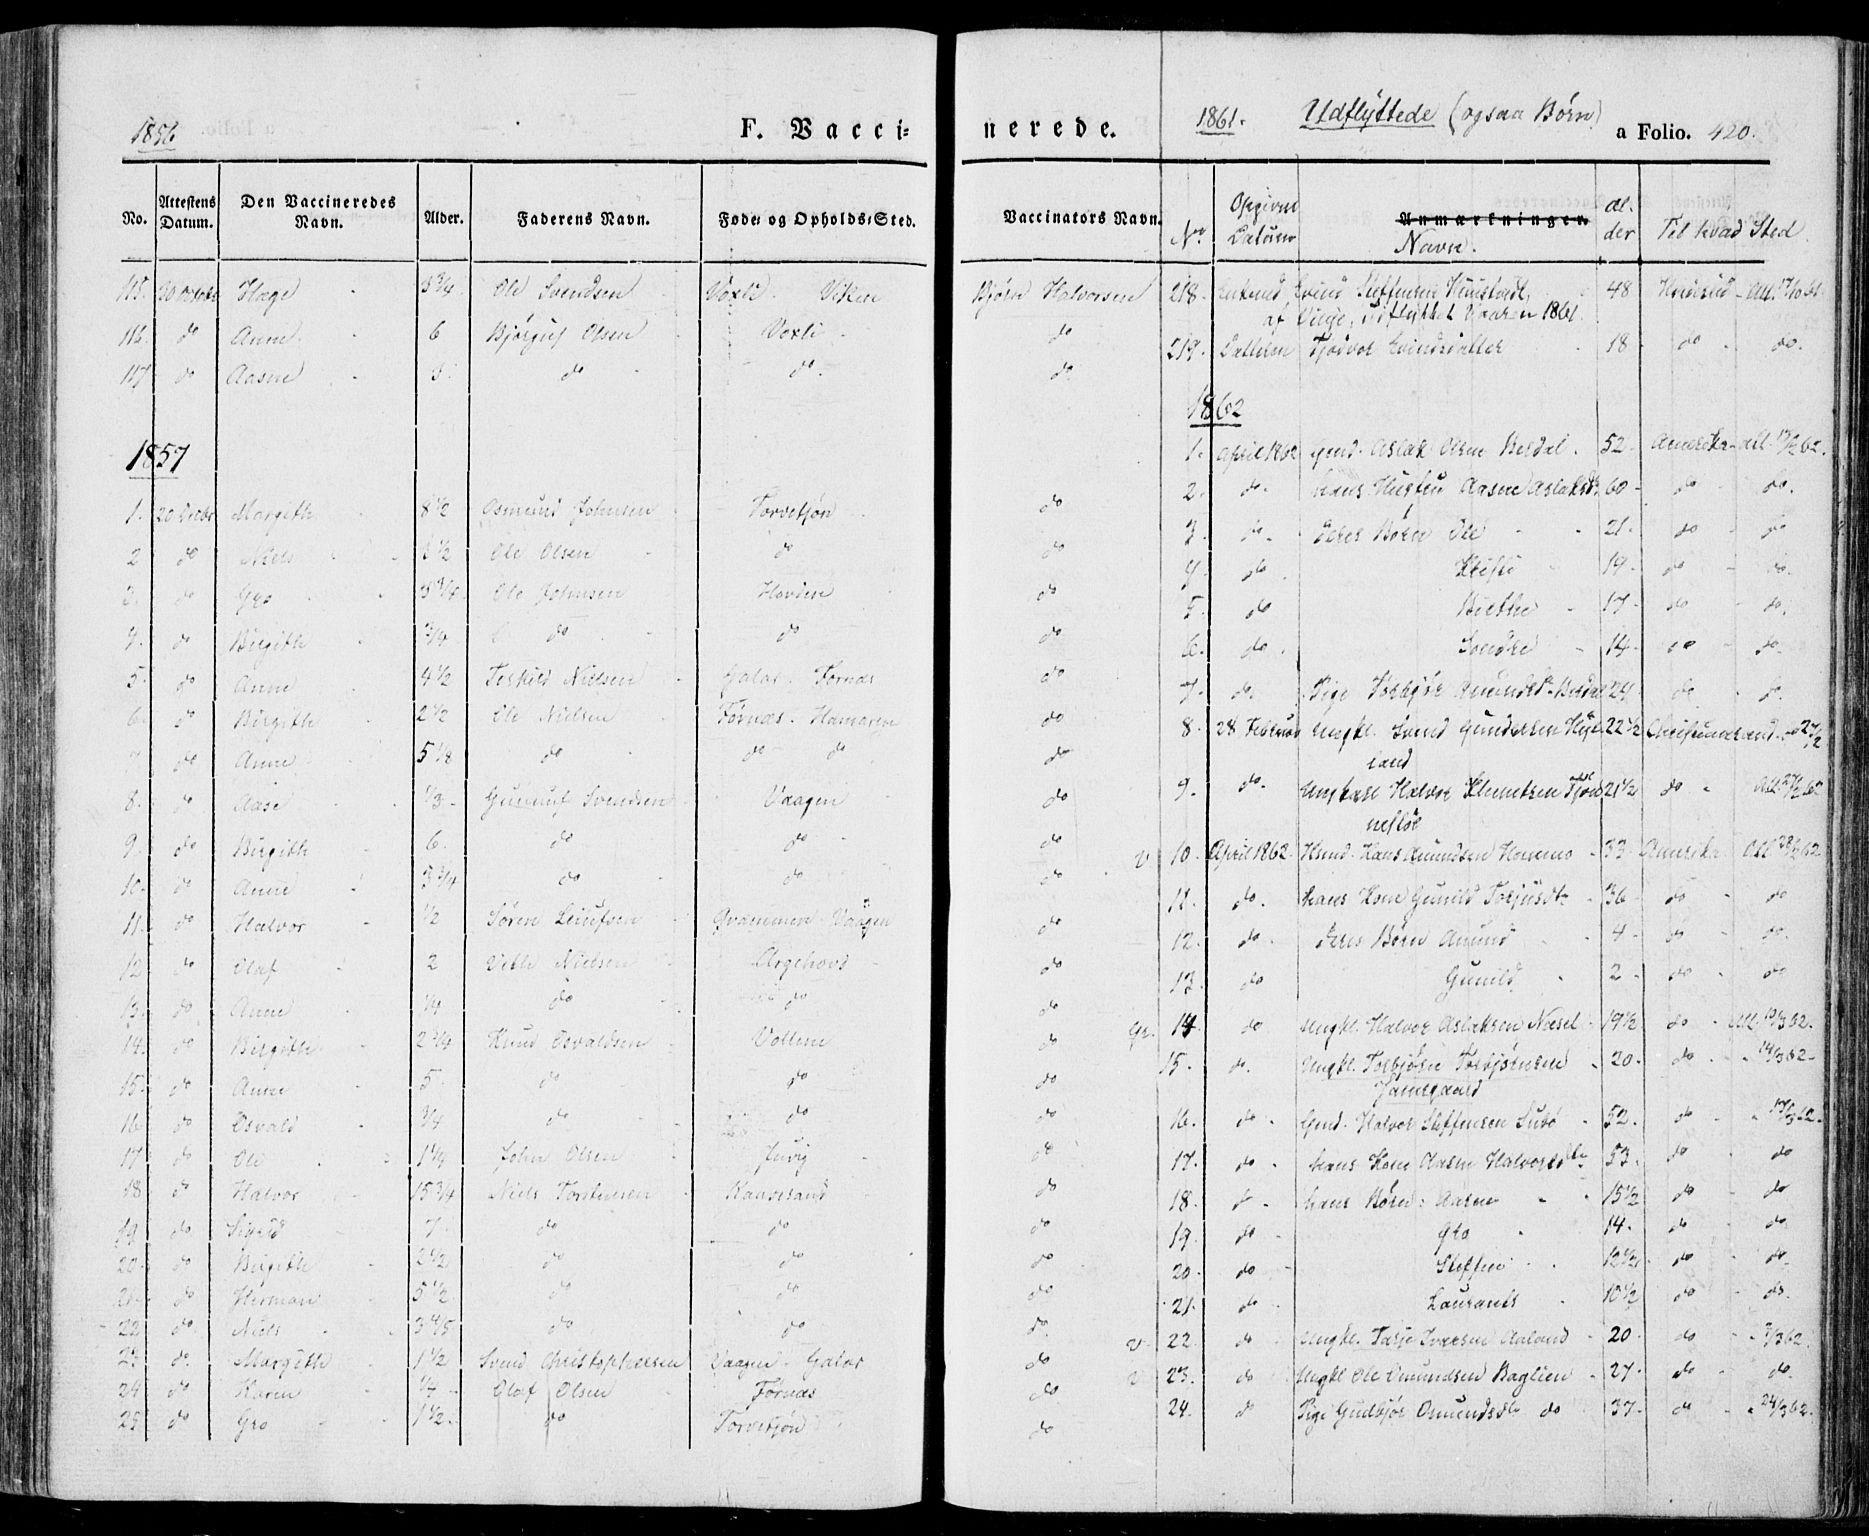 1856 F. Vacci-nerede. 1861. Udflyttede (ogsaa Børn) a Folio. 420.
No. Attestens Datum. Den Vaccineredes Navn. Alder. Faderens Navn. Føde- og Opholds-Sted. Vaccinators Navn.
115. 20 Octobr Hæge 3 3/4 Ole Svendsen Voxli. Viken Bjørn Halvorsen
116. do Anne 6 Bjørguf Olsen Voxli do
117 do Aasne do do. do
1857
1. 20 Decbr Margith 8 1/2 Osmund Johnsen Torvetjøn do
2 do Niels 1/2 Ole Olsen do do
3. do Gro 3 3/4 Ole Johnsen Hovden do
4. do Birgith 3/4 do do do
5. do Anne 4 1/2 Terkild Nielsen Galar. Førnæs do
6. do Birgith 2 1/2 Ole Nielsen Førnæs. Hamaren do
7 do Anne 5 1/8 do do do do
8. do Aase 1/3 Gunnuf Svendsen Vaagen do
9. do Birgith 6. do do do
10. do Anne 3 3/4 do do do
11. do Halvor 1/2 Søren Leiufsen Qvammen. Vaagen do
12 do Olaf 2 Vetle Nielsen Argehovd do
13. do Anne 1/4 do do do
14. do Birgith 2 3/4 Knud Osvaldsen Vollene do
15. do Anne 5. do do do
16 do Osvald 3/4 do do do
17 do Ole 1 1/4 John Olsen Juvig do
18 do Halvor 15 3/4 Niels Torstensen Raavesand do
19 do Sigrid 7. do do do
20. do Birgith 2 1/2 do do do
21. do Herman 5 1/2 do do do
22 do. Niels 3 4/5 do do do
23 do. Margith 1 1/2 Svend Christophersen Vaagen. Galar do
24 do Karen 1/4 Olaf Olsen Førnæs do
25 do Gro 1 1/2 do Torvetjøn do
No. Opgivne Datum Anmærkninger. Navn. Alder Til hvad Sted.
218. Enkemd. Evind Steffensen 48 Att. 17/10 61.
af Vinje, udflyttet Vaaren 1861.
219. Datteren Tjodvor Evindsdatter 18 do do.
1862
1. April 1862 Gmd. Aslak Olsen Berdal. 52 Amerika Att. 13/2 62.
2. do. hans Hustru Aasne Aslaksd. 60 do do.
3 do. deres Børn Ole 21. do do
4. do. 19. do do.
5. do Birthe 17. do do.
6. do. Søndre 14. do do.
7. do. Pige Torbjør Amundsd. Berdal 24. do do.
8. 28 Februar Ungkl. Svend Gundersen Hyl- 22 1/2 Christianssand. 27/2
land
9. do. Ungkarl Halvor Klemetsen 21 1/2 do Att. 27/2 62
10. April 1862. Hmd. Hans Amundsen Hommo 33 Amerika Att. 28/2 62.
11. do. hans Kone Gunild Torjusdtr. 36 do do
12. do. deres Børn Amund 4. do do.
13. do Gunild 2 do do
14 do Ungkl. Halvor Aslaksen Næsel. 19 1/2 do Att. 10/3 62.
15. do. Ungkl. Torbjørn Torbjørnsen 20. do 14/3 62
Jamsgaard
16. do. Gmd. Halvor Steffensen Subø 52. do 17/3 62.
17. do hans Kone Aasne Halvorsdtr. 53. do do
18. do hans Børn: Aasne 15 1/2 do do
19. do Gro 14. do do.
20 do Steffen 12 1/2 do do.
21. do Laurants 10 1/2 do do.
22 do Ungkl. Tarje Iversen Aaland 20 do 7/3 62.
23. do Ungkl Ole Omundsen Baglien 27. do do.
24. do Pige Gudbjør Omundsdtr. do 37. do 24/3 62.